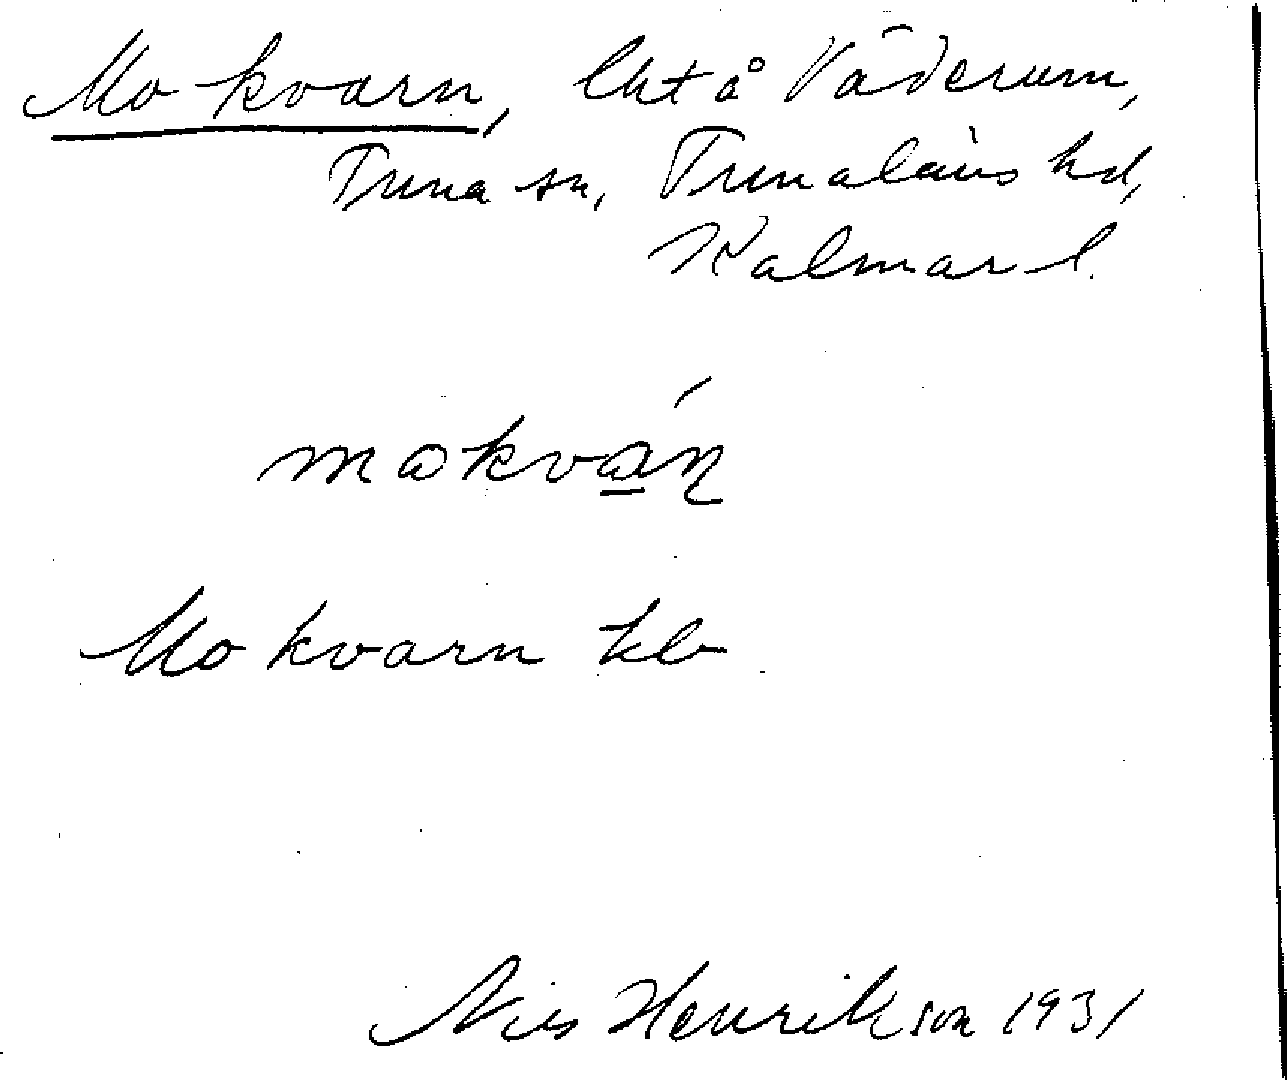 Mo kvarn, lht å Väderum,
Tuna sn, Tunaläns hd,
Kalmar l.
mokvá̱ɳ
Mo kvarn kb
Nils Henrikson 1931